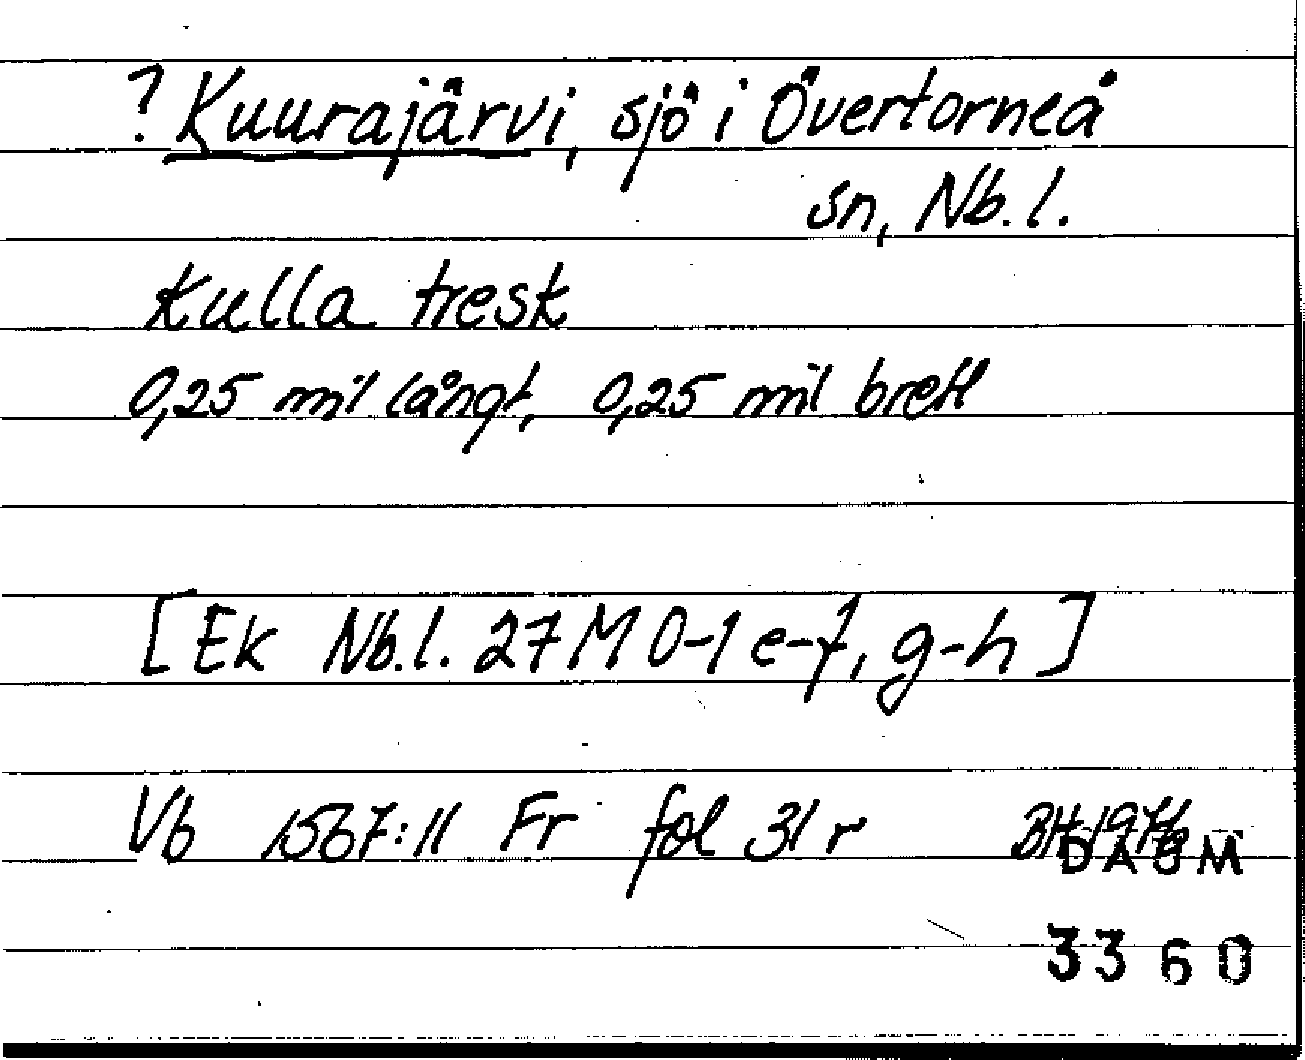 ? Kuurajärvi, sjö i Övertorneå
sn, Nb.l.
Kulla tresk
0,25 mil långt, 0,25 mil brett
[Ek Nb.l. 27 M 0-1 e-f, g-h]
Vb 1567:11 Fr fol 31 r
DAUM
3360